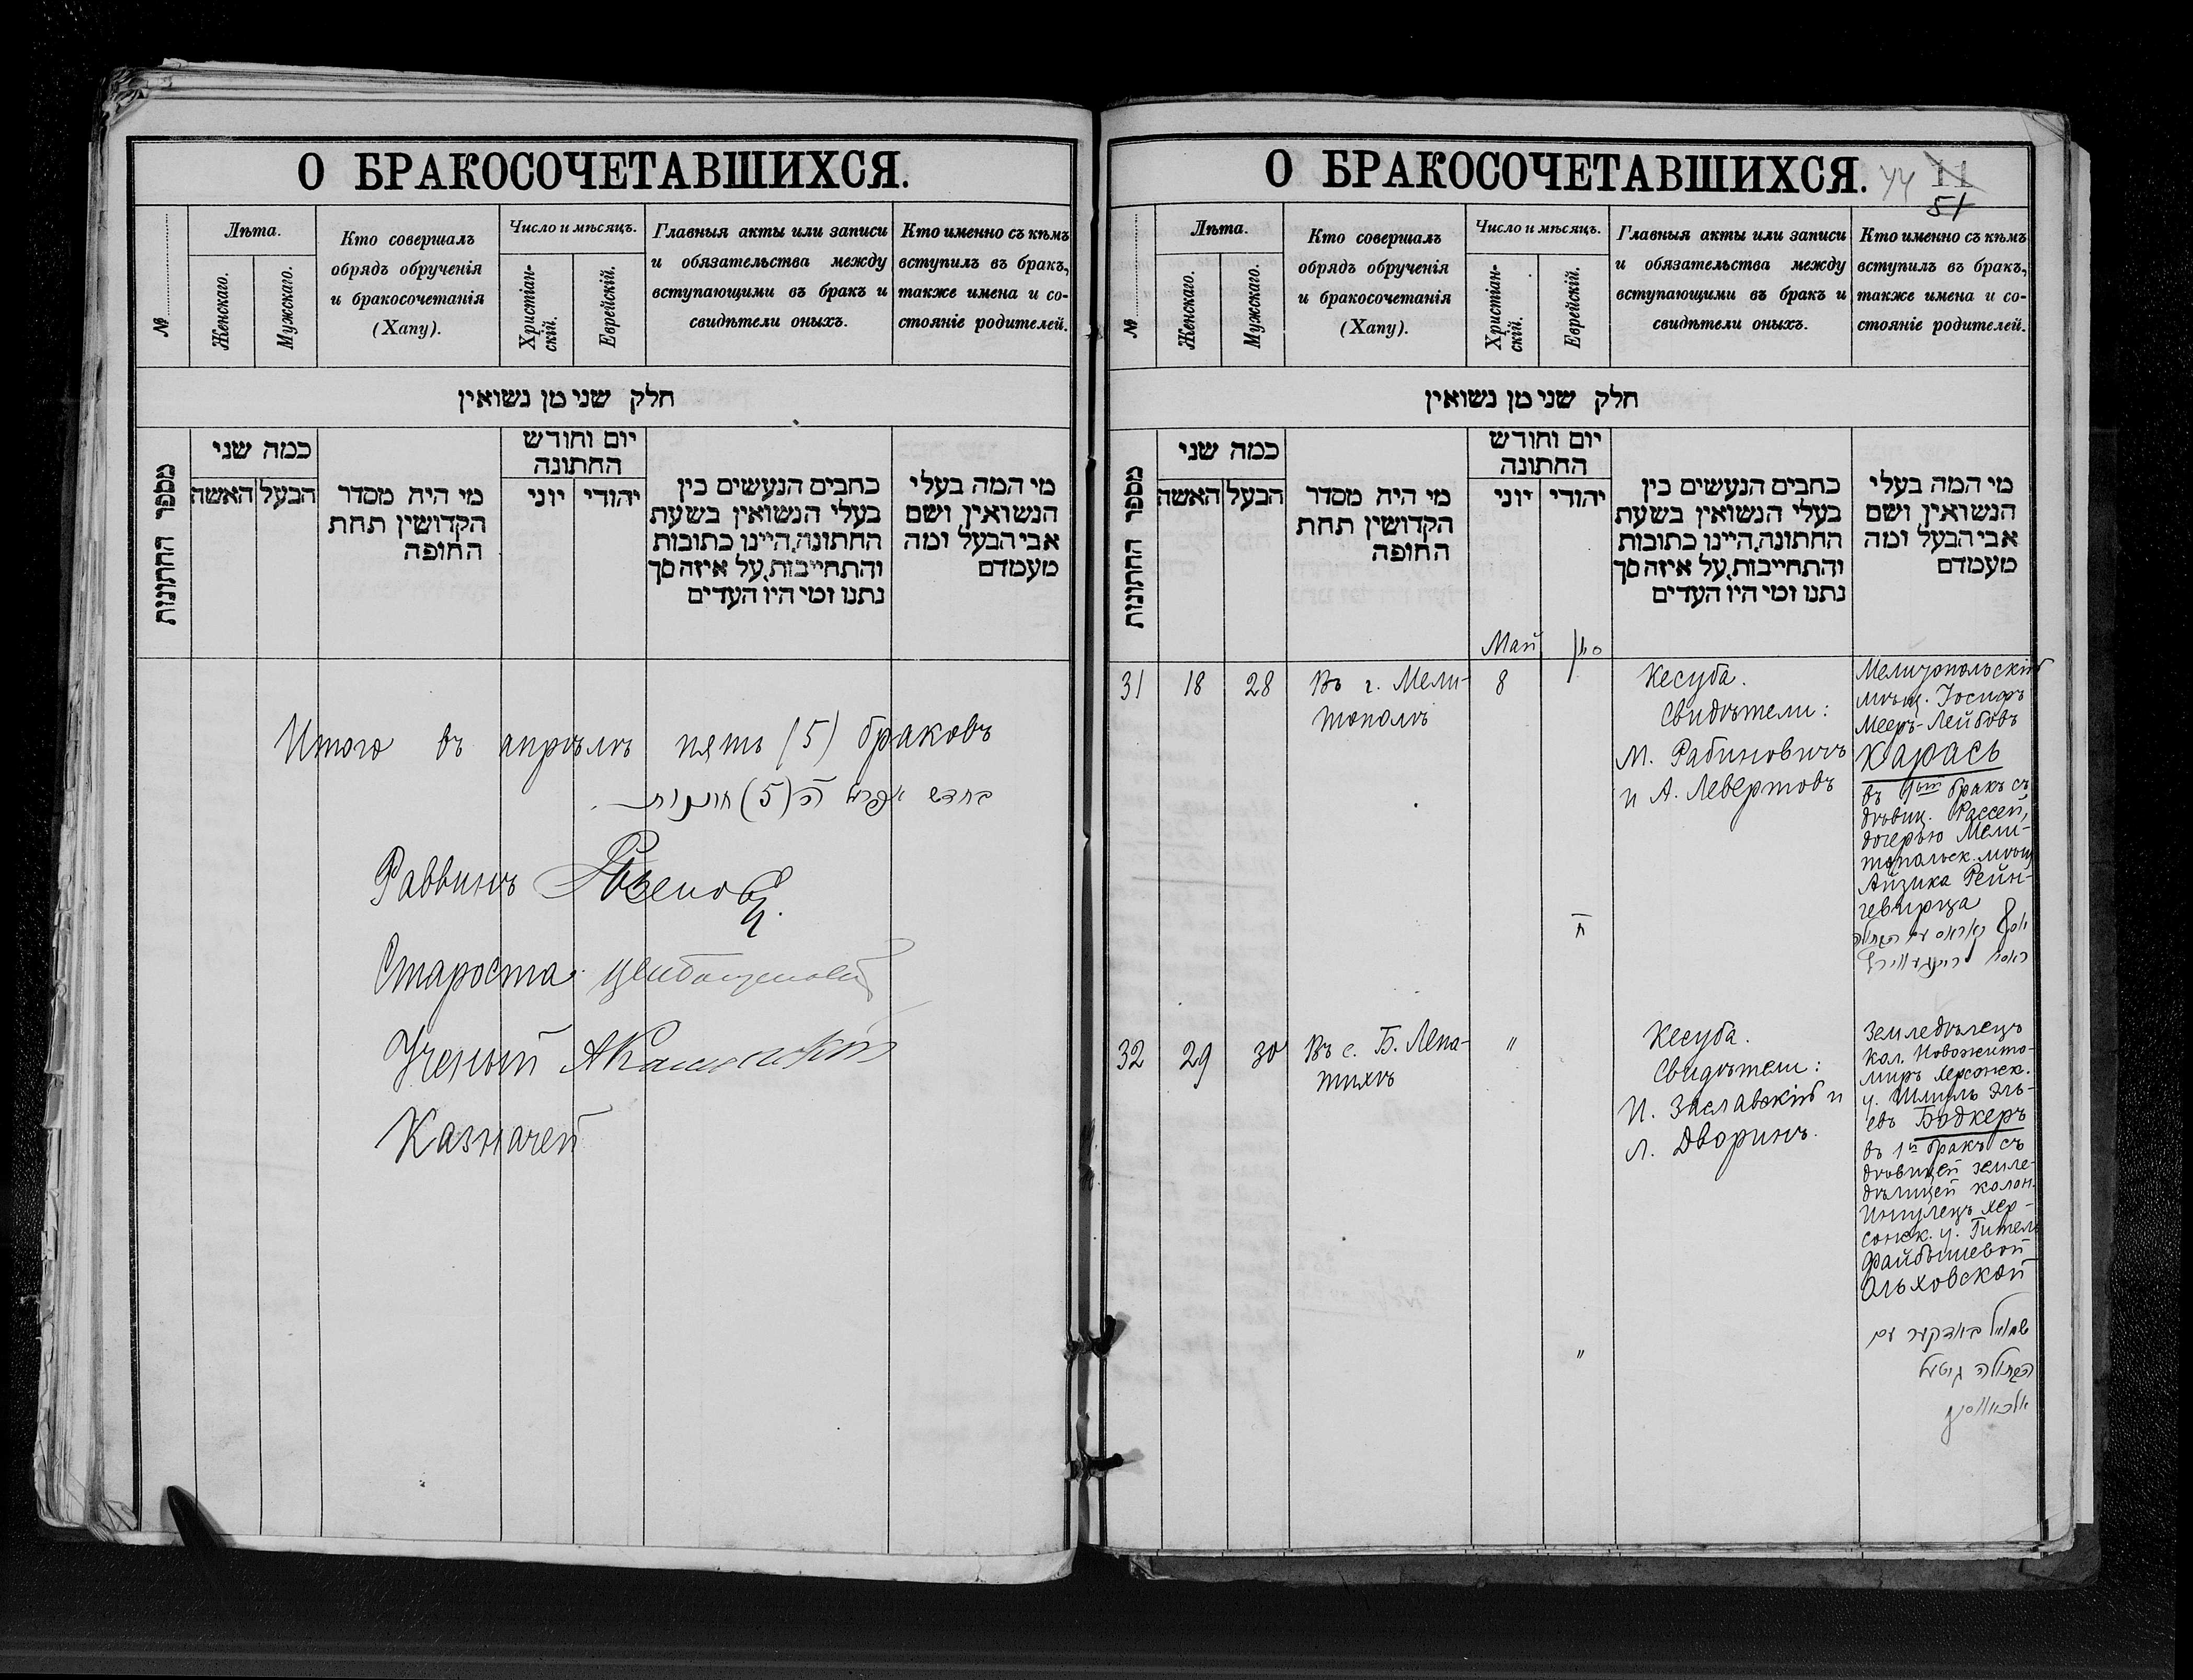 О БРАКОСОЧЕТАВШИХСЯ.
№
Лѣта.
Женскаго.
Мужскаго.
Кто совершалъ
обрядъ обрученія
и бракосочетанія
(Хапу).
Число и мѣсяцъ.
Христіан-
скій.
Еврейскій.
Главныя акты или записи
и обязательства между
вступающими въ бракъ и
свидѣтели оныхъ.
Кто именно съ кѣмъ
вступилъ въ бракъ,
также имена и со-
стояніе родителей.
חלק שני מן נשואין
מספר החתונות
כמה שני
האשה
הבעל
מי היה מסדר
הקדושין תחת
החופה
יום וחודש
החתונה
יוני
יהודי
כתבים הנעשים בין
בעלי הנשואין בשעת
החתונה, היינו כתובות
והתחייבות, על איזה סך
נתנו ומי היו העדים
מי המה בעלי
הנשואין ושם
אבי הבעל ומה
מעמדם
Итого въ апрѣлѣ пять (5) браковъ
בחדש אפריל ה' (5) חתונות
Раввинъ
Староста
Ученый
Казначей
О БРАКОСОЧЕТАВШИХСЯ. 44 11
51
№
Лѣта.
Женскаго.
Мужскаго.
Кто совершалъ
обрядъ обрученія
и бракосочетанія
(Хапу).
Число и мѣсяцъ.
Христіан-
скій.
Еврейскій.
Главныя акты или записи
и обязательства между
вступающими въ бракъ и
свидѣтели оныхъ.
Кто именно съ кѣмъ
вступилъ въ бракъ,
также имена и со-
стояніе родителей.
חלק שני מן נשואין
מספר החתונות
כמה שני
האשה
הבעל
מי היה מסדר
הקדושין תחת
החופה
יום וחודש
החתונה
יוני
יהודי
כתבים הנעשים בין
בעלי הנשואין בשעת
החתונה, היינו כתובות
והתחייבות, על איזה סך
נתנו ומי היו העדים
מי המה בעלי
הנשואין ושם
אבי הבעל ומה
מעמדם
Май
סיון
31
18
28
Въ г. Мели-
тополѣ
8
ח
Кесуба.
Свидѣтели:
М. Рабиновичъ
и А. Левертовъ
Мелитопольскій
мѣщ. Іосифъ
Мееръ-Лейбовъ
Карась
въ 1ый бракъ съ
дѣвиц. Рассей,
дочерью Мели-
топольск. мѣщ
Айзика Рейн-
гевирца
יוסף קאראס עם הבתולה
ראסי ריינגעווירץ
32
29
30
Въ с. Б. Лепа-
тихѣ
"
"
Кесуба.
Свидѣтели:
И. Заславскій и
Л. Дворинъ.
Земледѣлецъ
кол. Новожито-
миръ Херсонск.
у. Шмуль Эль-
евъ Бодкеръ
въ 1й бракъ съ
дѣвицей земле-
дѣлицей колон.
Ингулецъ Хер-
сонск. у. Гитель
Файбышевой
Ольховской
שמואל באדקער עם
הבתולה גיטעל
אלכאווסקי